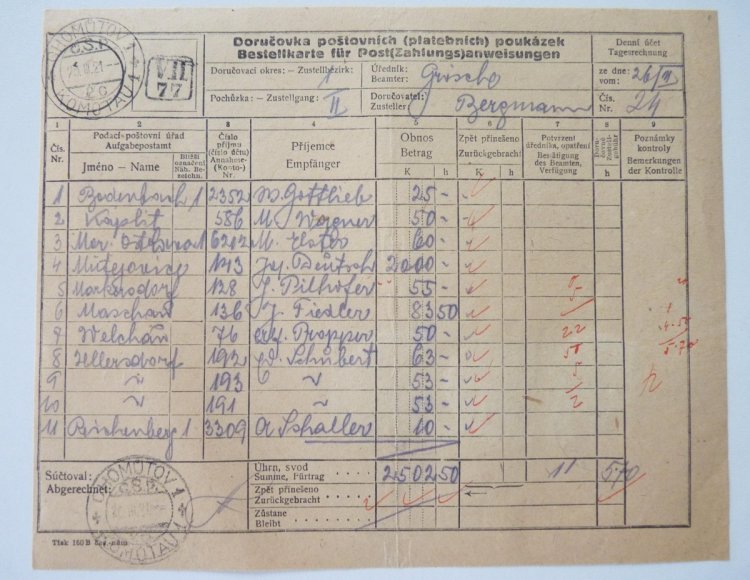 CHOMOTOV 1
Č.S.P.
26.III.21
2c
KOMOTAU 1
VII
77
Doručovka poštovních (platebních) poukázek
Bestellkarte für Post(Zahlungs)anweisungen
Denní účet
Tagesrechnung
Doručovací okres: – Zustellbezirk:
Úředník:
Beamter:
ze dne:
vom: 26/III
Pochůzka: – Zustellgang: II
Doručovatel:
Zusteller Bergmann
Čís.
Nr. 24
1 2 3 4 5 6 7 8 9
Čís.
Nr.
Podací-poštovní úřad
Aufgabepostamt
Jméno – Name
Bližší
označení
Näh. Be-
zeichn.
Číslo
příjmu
(číslo účtu)
Annahme-
(Konto-)
Nr.
Příjemce
Empfänger
Obnos
Betrag
K h
Zpět přinešeno
Zurückgebracht
K h
Potvrzení
úředníka, opatření
Bestätigung
des Beamten,
Verfügung
Doru-
čovné
Zustell-
gebühr
h
Poznámky
kontroly
Bemerkungen
der Kontrolle
1 Bodenbach 1 2352 W. Gottlieb 25 -
2 Kaplit 586 M. Wagner 50 -
3 6212 M. Elster 60 -
4 143 Deutsch 2000 -
5 Markersdorf 128 J. Pilhofer 55 -
6 Maschau 136 J. Fiedler 83 50
7 Welchau 76 Propper 50 - 22
8 Jellersdorf 192 Ed. Schubert 63 -
9 " 193 " 53 -
10 " 191 " 53 - 2
11 Reichenberg 1 3309 A Schaller 10 -
Súčtoval:
Abgerechnet:
Úhrn, svod
Summe, Fürtrag 2502 50 11 570
Zpět přinešeno
Zurückgebracht
Zůstane
Bleibt
CHOMOTOV 1
Č.S.P.
KOMOTAU 1
Tisk 160 B čes.-něm.